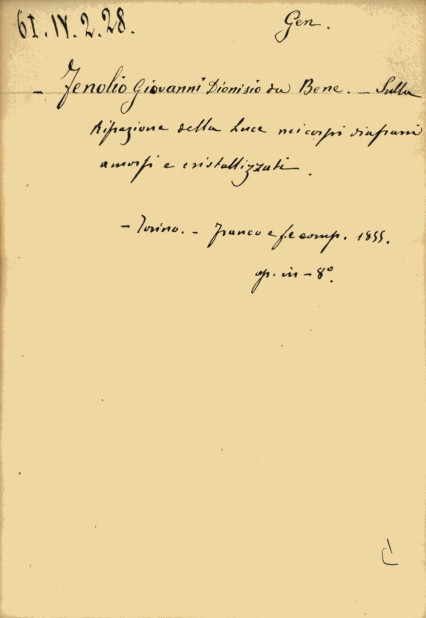 61.IV.2.28.
Gen.
- Fenolio Giovanni Dionisio da Bene. - Sulla
Rifrazione della Luce nei corpi diafani
amorfi e cristallizzati.
- Torino. - Franco e f. e comp. 1855.
op. in-8°.